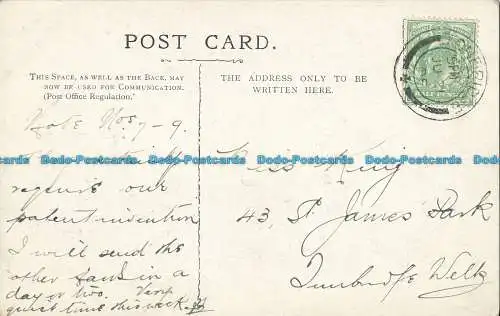 POST CARD.
THIS SPACE, AS WELL AS THE BACK, MAY
NOW BE USED FOR COMMUNICATION.
(Post Office Regulation.)
THE ADDRESS ONLY TO BE
WRITTEN HERE.
Note Nos 7-9.
require our
patent invention
I will send the
other in a
day or two. Very
quiet time this week.
Miss King
43, St James Park
Tunbridge Wells
Bla-Postcards Bla-Postcards Bla-Postcards Bla-Postcards Bla-Postcards